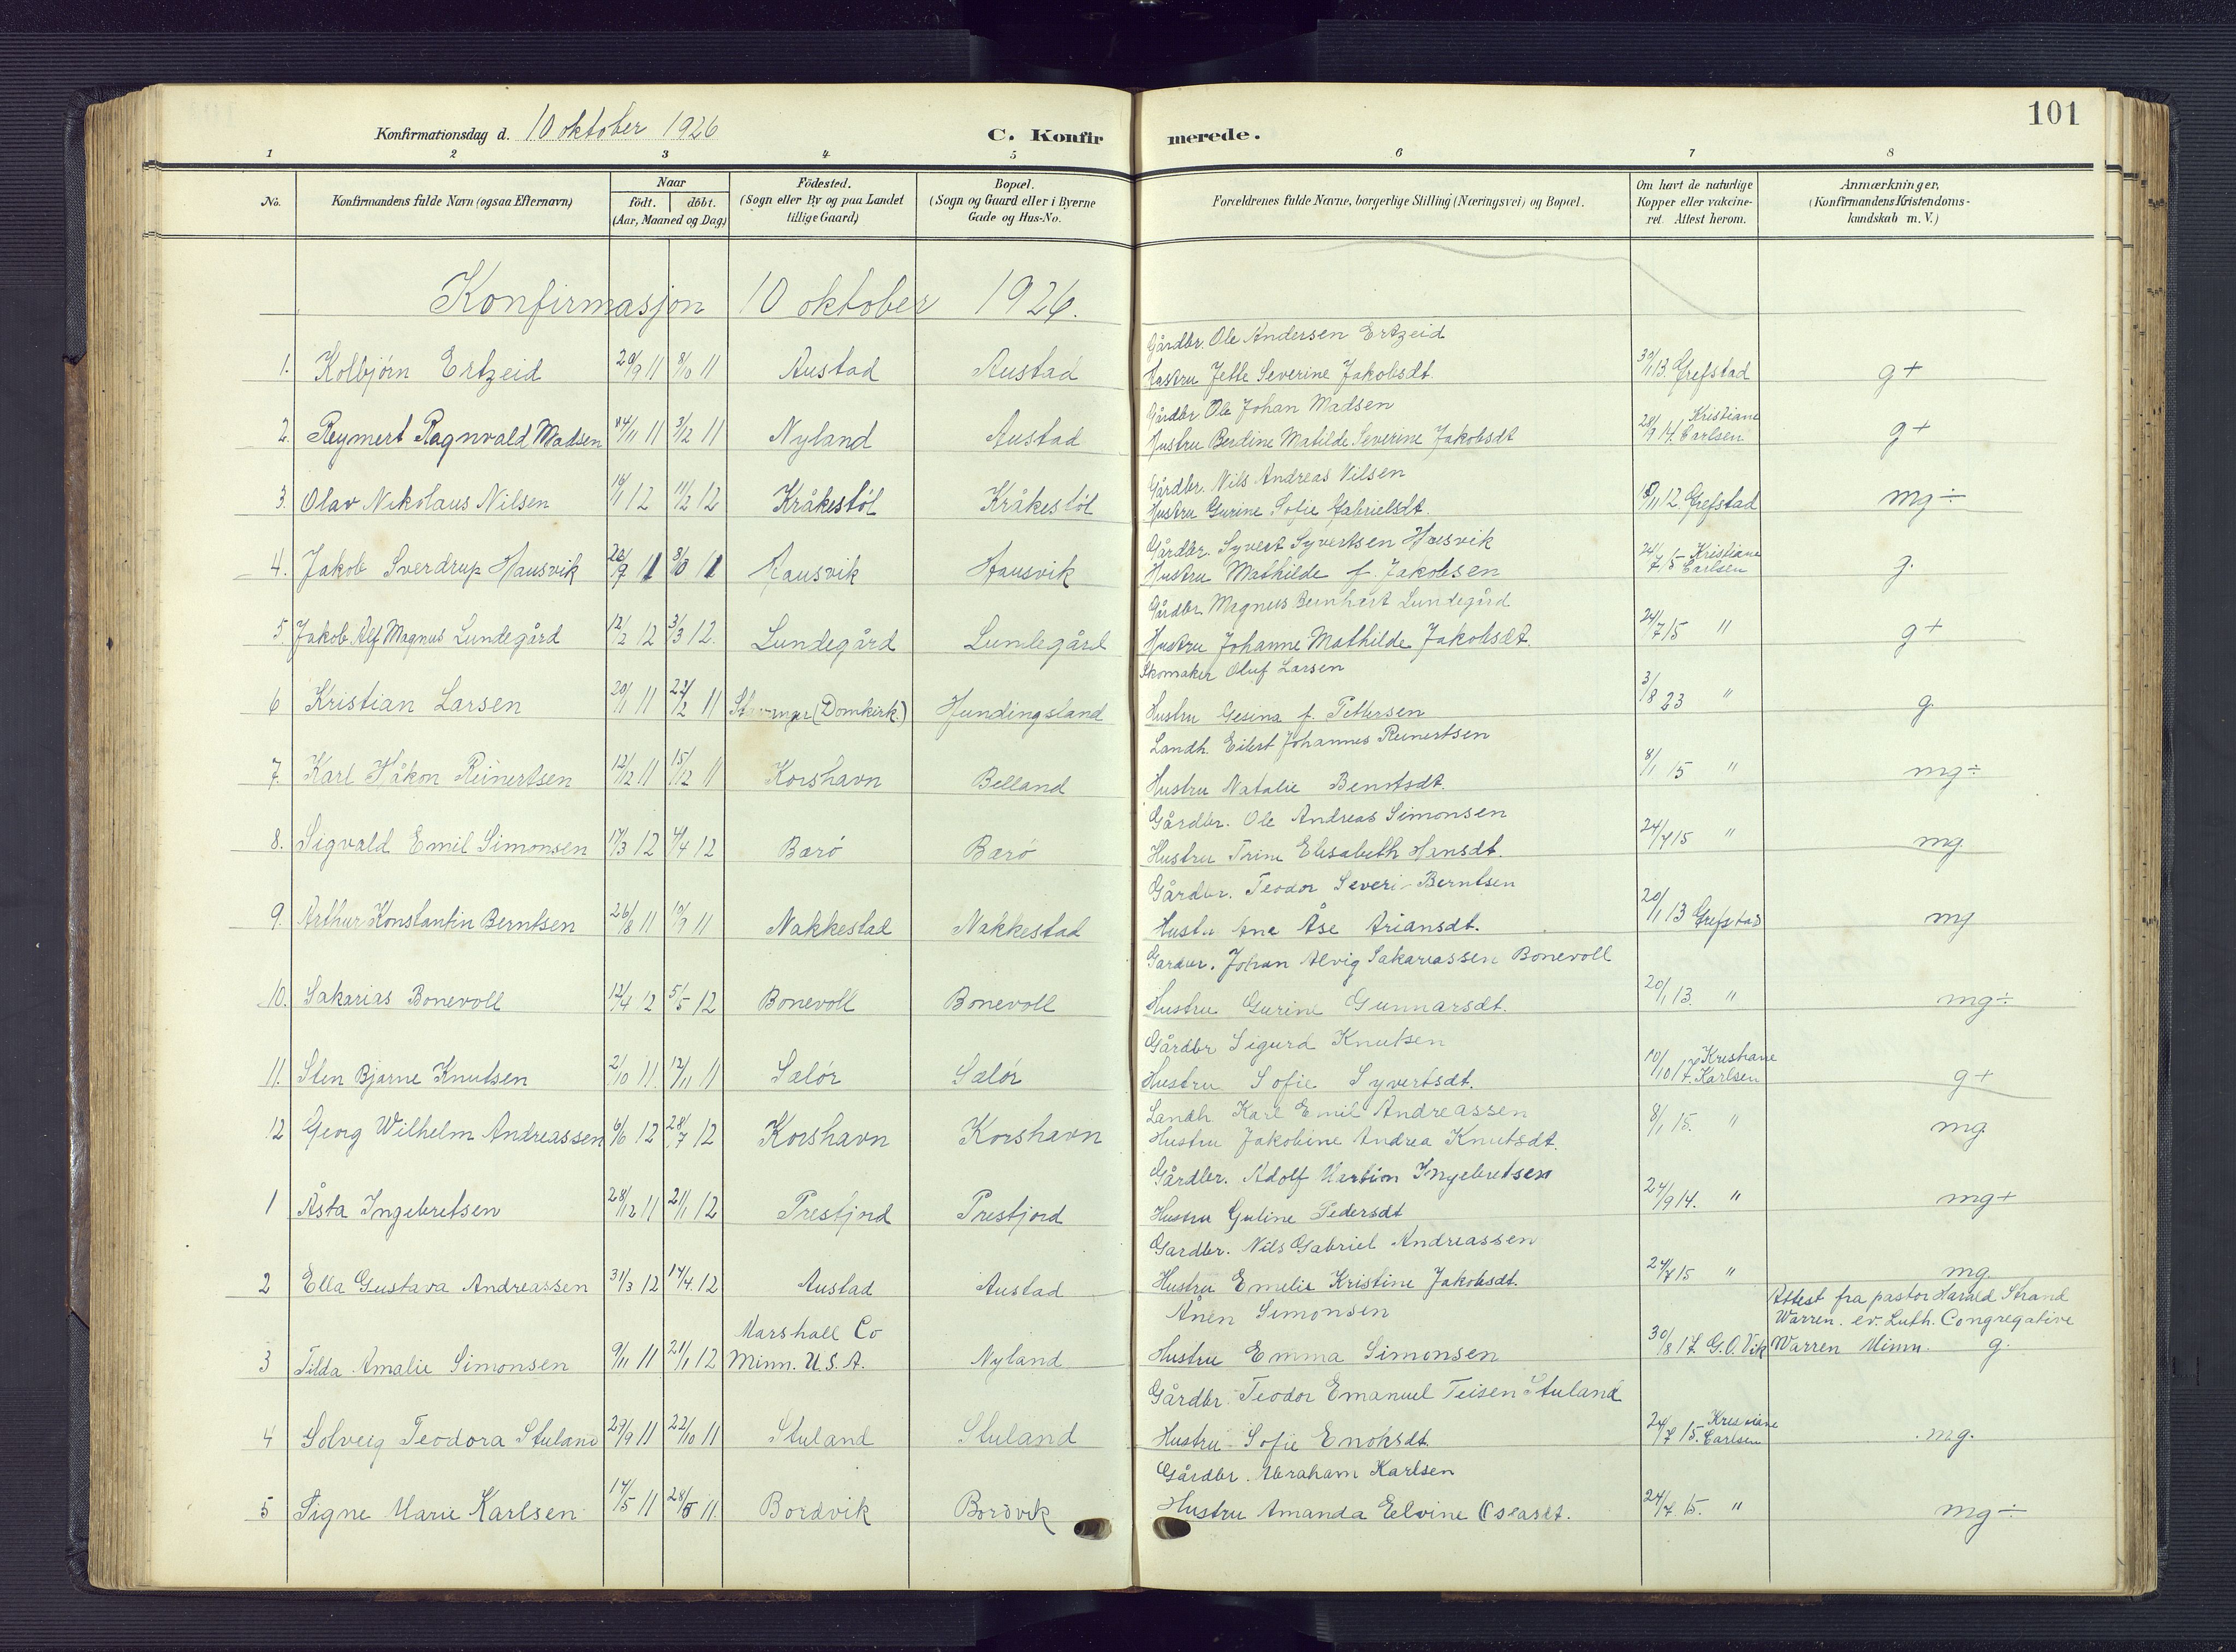 101
Konfirmationsdag d. 10 oktober 1926 C. Konfirmerede.
1 2 3 4 5 6 7 8
No. Konfirmandens fulde Navn (ogsaa Efternavn) Naar födt. döbt. (Aar, Maaned og Dag) Födested. (Sogn eller By og paa Landet tillige Gaard) Bopæl. (Sogn og Gaard eller i Byerne Gade og Hus-No. Forældrenes fulde Navne, borgerlige Stilling (Næringsvei) og Bopæl. Om havt de naturlige Kopper eller vakcineret. Attest herom. Anmærkninger, (Konfirmandens Kristendomskundskab m. V.)
Konfirmasjon 10 oktober 1926.
Gårdbr. Ole Andersen Ertzeid
1. Kolbjørn Ertzeid 20/9 11 8/10 11 Austad Austad Hustru Jette Severine Jakobsdt. 30/1 13. Grefstad g+
Gårdbr Ole Johan Madsen
2. Reymert Ragnvald Madsen 11 3/12 11 Nyland Austad Hustru Berdine Matilde Severine Jakobsdt 28/9 14. Kristiane Carlsen g+
Gårdbr. Nils Andreas Nilsen
3. Olav Nikolaus Nilsen 16/1 12 11/2 12 Kråkestøl Kråkestøl Hustru Gurine Sofie Gabrielsdt. 12. Grefstad mg÷
Gårdbr. Syvert Syvertsen Hausvik
4. Jakob Sverdrup Hausvik 11 8/10 11 Hausvik Hausvik Hustru Mathilde f. Jakobsen 24/7 15 Kristiane Carlsen g.
Gårdbr. Magnus Bernhart Lundegård
5. Jakob Alf Magnus Lundegård 12/2 12 3/3 12. Lundegård Lundegård Hustru Johanne Mathilde Jakobsdt. 24/7 15 " g+
Skomaker Oluf Larsen
6 Kristian Larsen 20/1 11 11 Stavanger (Domkirk.) Hundingsland Hustru Gesina f. Pettersen 3/8 23 " g.
Landh. Eilert Johannes Reinertsen
7. Karl Håkon Reinertsen 12/12 11 15/12 11 Korshavn Belland Hustru Natalie Berntsdt. 8/1 15 " mg÷
Gårdbr. Ole Andreas Simonsen
8. Sigvald Emil Simonsen 17/3 12 4/4 12 Barø Barø Hustru Trine Elisabeth Hansdt. 24/7 15 " mg.
Gårdbr. Teodor Severi Berntsen
9. Arthur Konstantin Berntsen 26/8 11 11 Nakkestad Nakkestad Hustru Ane Åse Ariansdt. 20/1 13 Grefstad mg
Gardbr. Johan Alvig Sakariassen Bonevoll
10. Sakarias Bonevoll 12/4 12 5/5 12 Bonevoll Bonevoll Hustru Gurine Gunnarsdt. 20/1 13. " mg÷
Gårdbr Sigurd Knutsen
11. Sten Bjarne Knutsen 2/10 11. 12/11 11 Salør Salør Hustru Sofie Syvertsdt. 10/10 17. Kristiane Karlsen g+
Landh. Karl Emil Andreassen
12 Georg Wilhelm Andreassen 6/6 12 28/7 12 Korshavn Korshavn Hustru Jakobine Andrea Knutsdt. 8/1 15. " mg.
Gårdbr. Adolf Martion Ingebretsen
1 Åsta Ingebretsen 28/12 11 21/1 12 Prestfjord Prestfjord Hustru Guline Pedersdt 24/9 14. " mg+
Gardbr. Nils Gabriel Andreassen
2 Ella Gustava Andreassen 31/3 12 14/4. 12 Austad Austad Hustru Emelie Kristine Jakobsdt. 24/7 15 " mg.
Marshall Co Ånen Simonsen Attest fra pastor Harald Strand
Warren. ev. Luth. Congregative
3 Tilda Amalie Simonsen 9/11 11 21/1 12 Minn. U.S.A. Nyland Hustru Emma Simonsen 30/8 17 G.O. Vik Warren Minn. g.
Gårdbr. Teodor Emanuel Teisen Stuland
4 Solveig Teodora Stuland 29/9 11 22/10 11 Stuland Stuland Hustru Sofie Enoksdt. 24/7 15. Kristiane Carlsen mg.
Gårdbr. Abraham Karlsen
5 Signe Marie Karlsen 11 28/5 11. Bordvik Bordvik Hustru Amanda Elvine Oseasdt. 24/7. 15. " mg÷